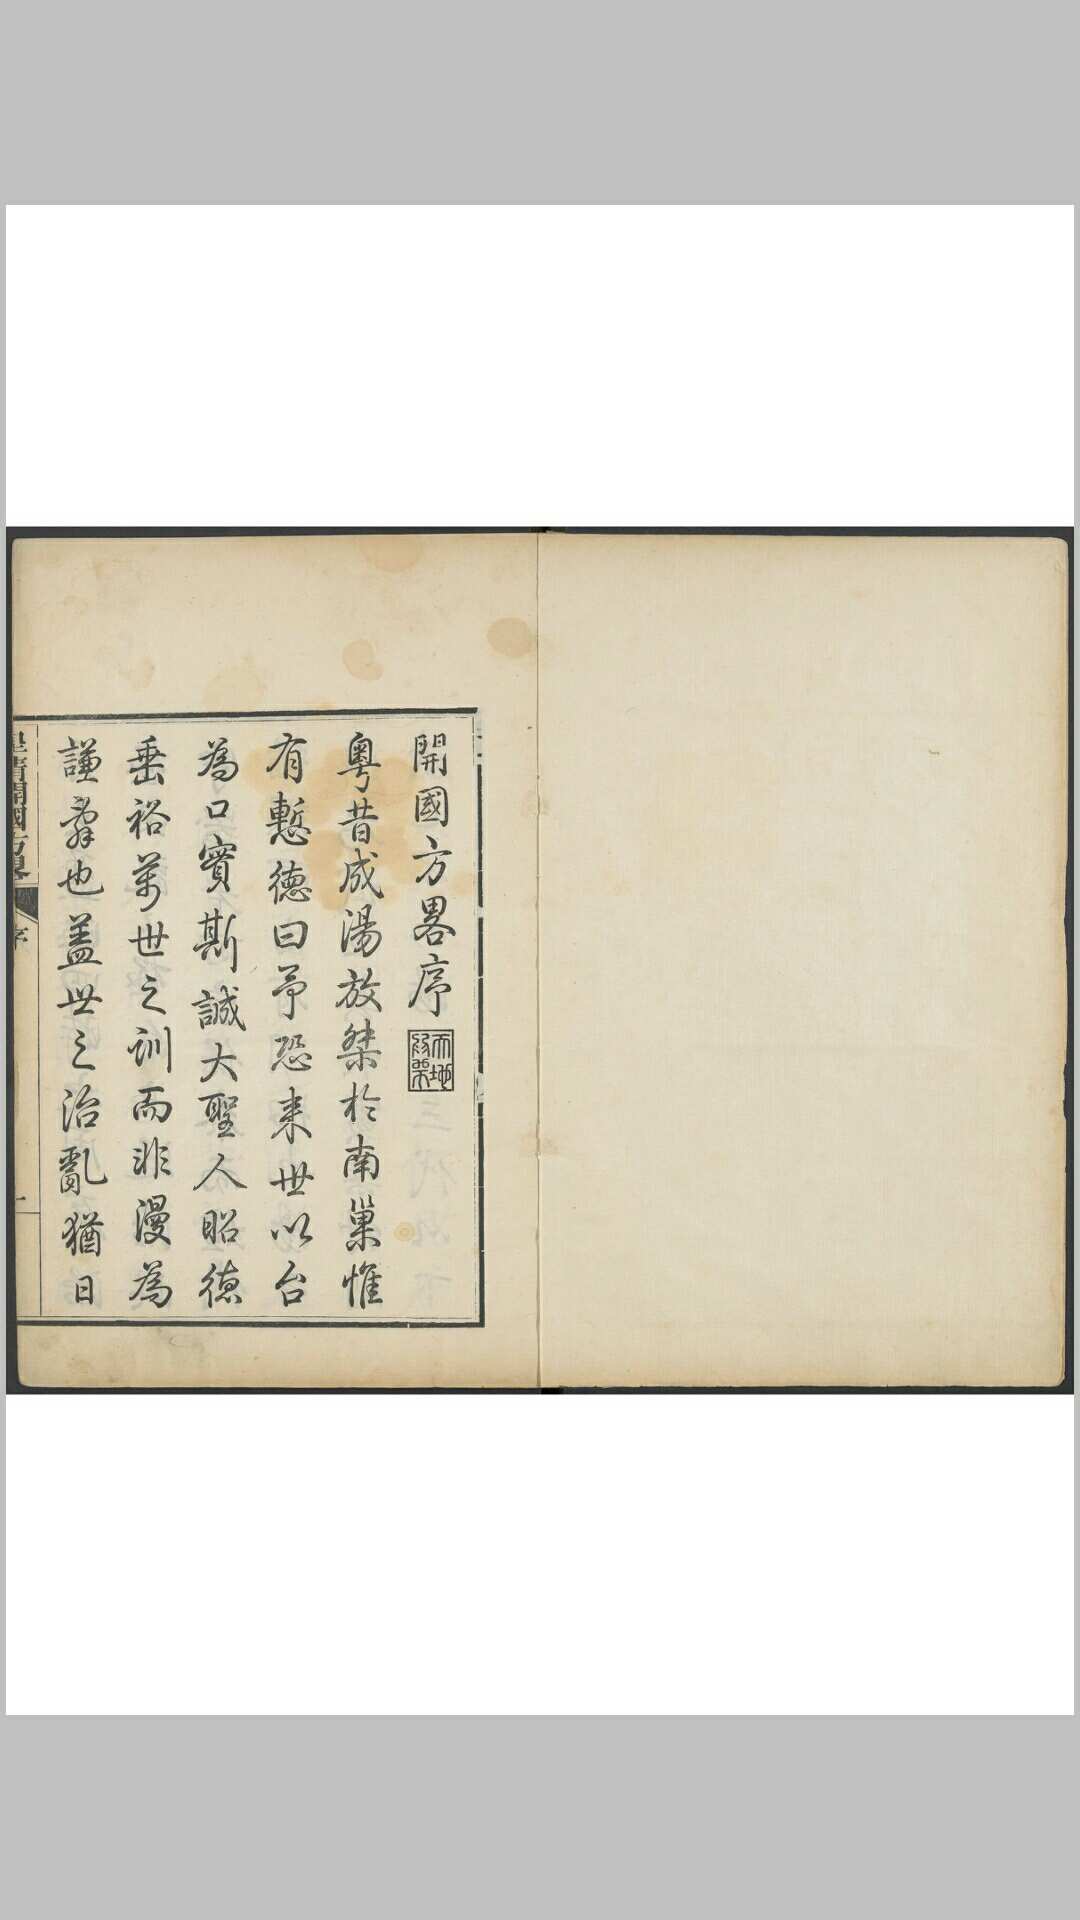 開國方畧序
粵昔成湯放桀於南巢惟
有慙德曰予恐來世以台
為口實斯誠大聖人昭德
垂裕萬世之訓而非漫為
謙辭也蓋世之治亂猶日
皇清開國方畧
序